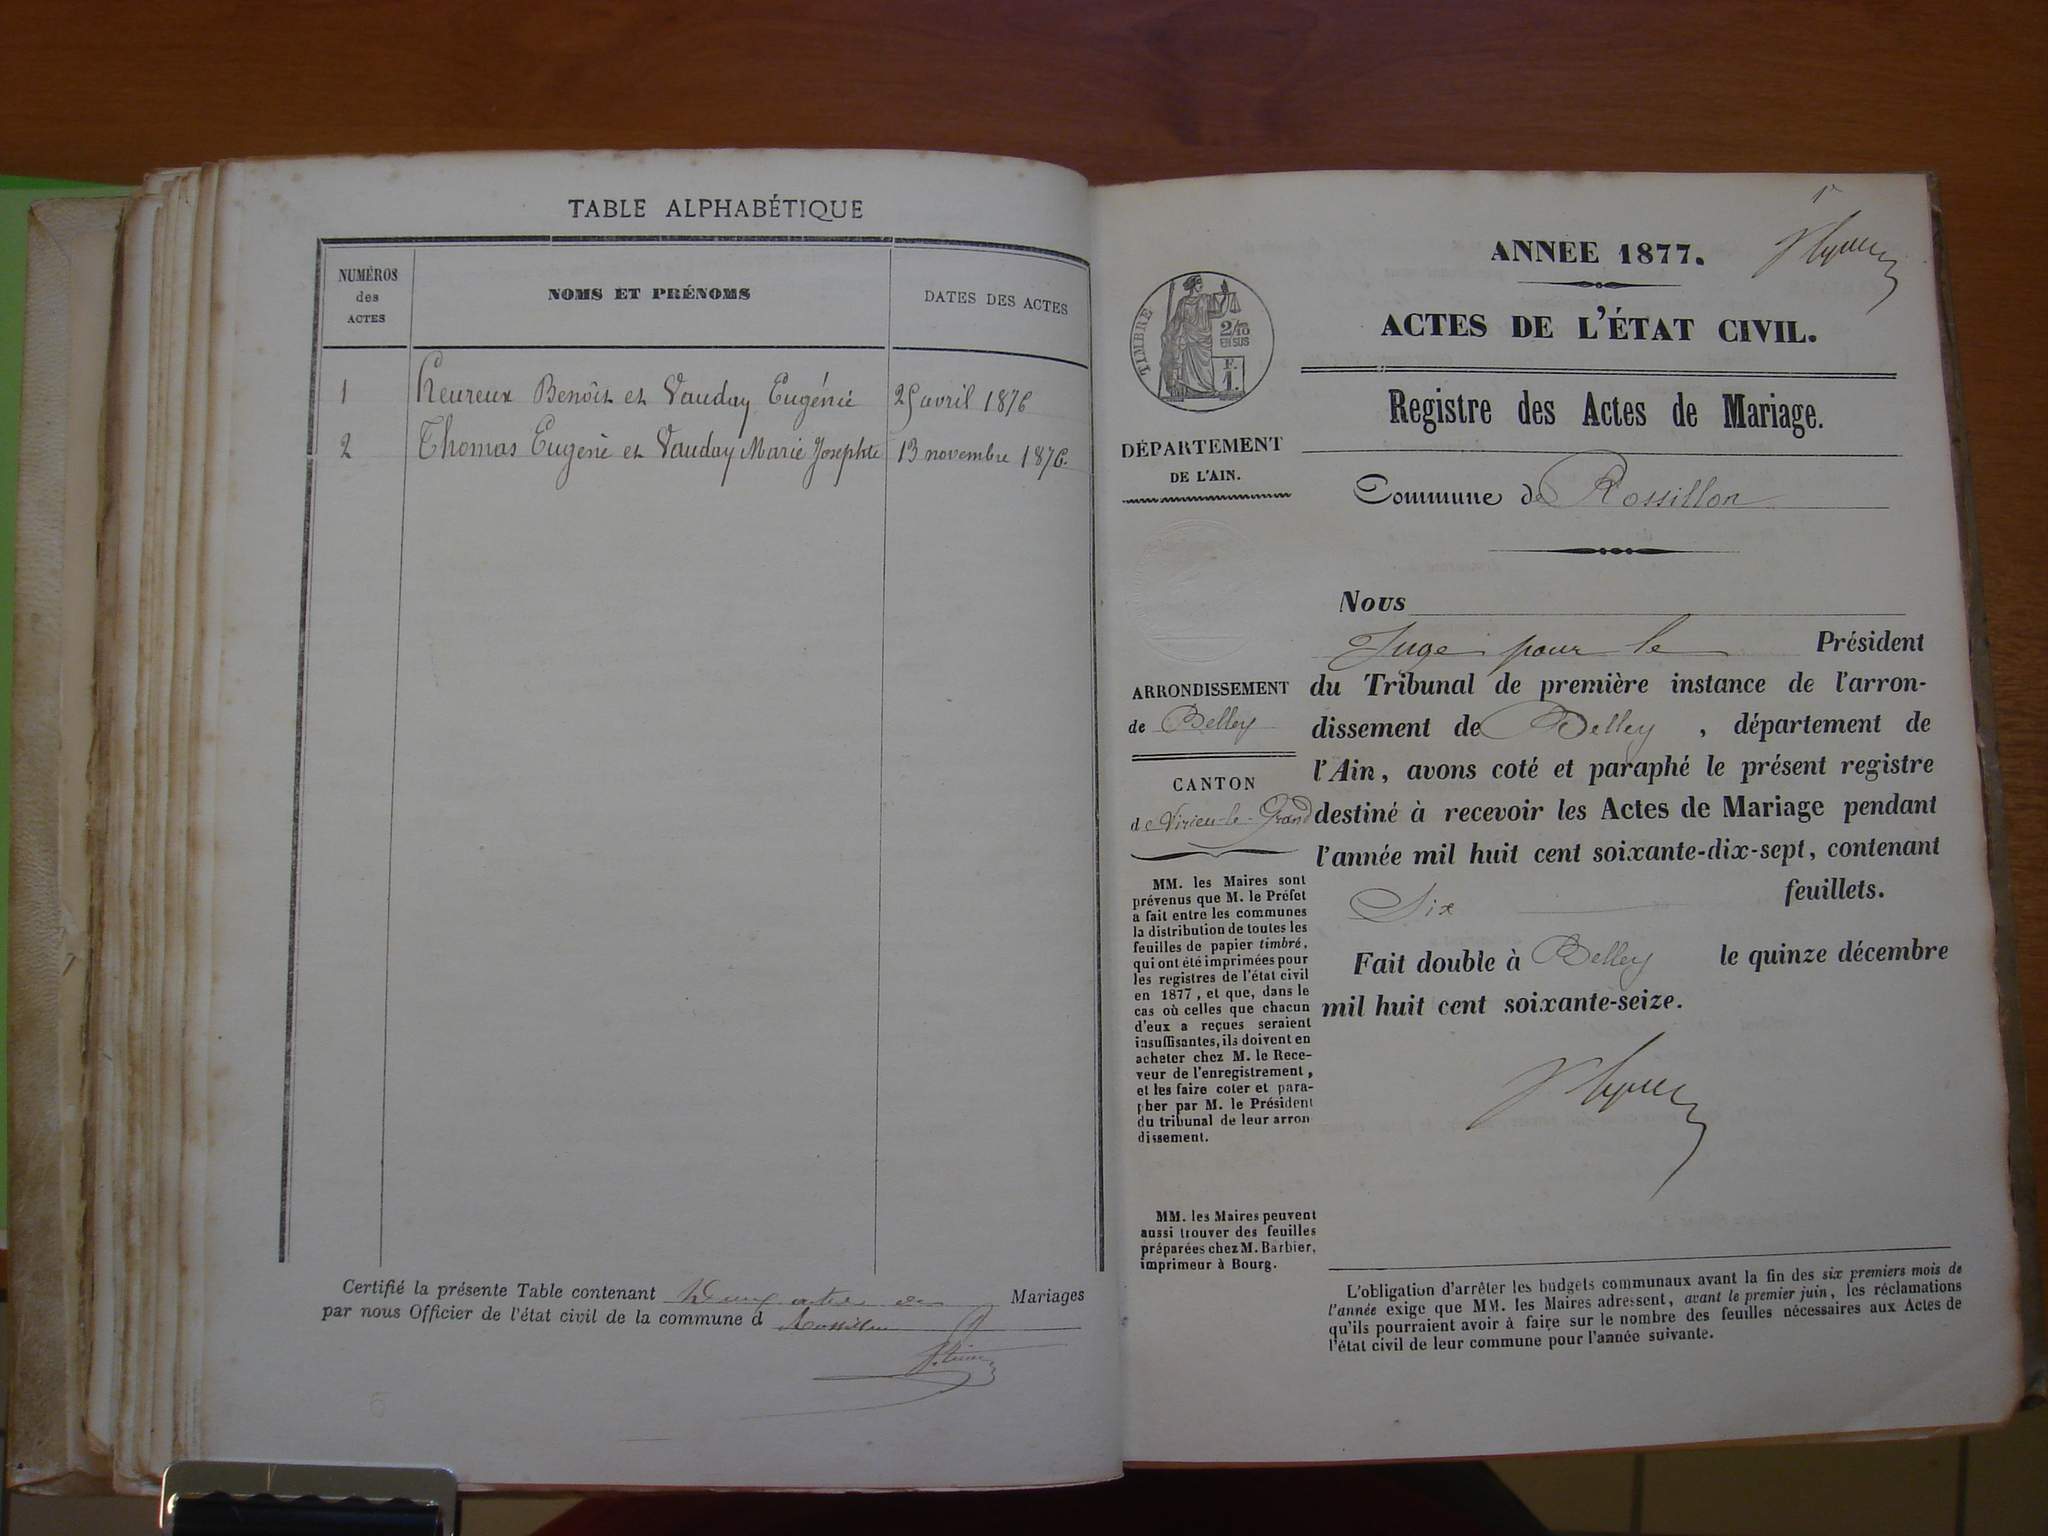 TABLE ALPHABÉTIQUE
NUMÉROS
des
ACTES
NOMS ET PRÉNOMS
DATES DES ACTES
1 Heureux Benôit et Vauday Eugénie 25 avril 1876
2 Thomas Eugène et Vauday Marie Josephte 13 novembre 1876.
Certifié la présente Table contenant Deux actes de Mariages
par nous Officier de l'état civil de la commune d Rossillon
6
1r
ANNEE 1877.
ACTES DE L'ÉTAT CIVIL.
Registre des Actes de Mariage.
Commune de Rossillon
TIMBRE
2/10
EN SUS
F.
1.
DÉPARTEMENT
DE L'AIN.
ARRONDISSEMENT
de Belley
CANTON
de Virieu-le-Grand
MM. les Maires sont
prévenus que M. le Préfet
a fait entre les communes
la distribution de toutes les
feuilles de papier timbré,
qui ont été imprimées pour
les registres de l'état civil
en 1877, et que, dans le
cas où celles que chacun
d'eux a reçues seraient
insuffisantes, ils doivent en
acheter chez M. le Rece-
veur de l'enregistrement,
et les faire coter et para-
pher par M. le Président
du tribunal de leur arron
dissement.
MM. les Maires peuvent
aussi trouver des feuilles
préparées chez M. Barbier,
imprimeur à Bourg.
Nous
Juge pour le Président
du Tribunal de première instance de l'arron-
dissement de Belley, département de
l'Ain, avons coté et paraphé le présent registre
destiné à recevoir les Actes de Mariage pendant
l'année mil huit cent soixante-dix-sept, contenant
Six feuillets.
Fait double à Belley le quinze décembre
mil huit cent soixante-seize.
L'obligation d'arrêter les budgets communaux avant la fin des six premiers mois de
l'année exige que MM. les Maires adressent, avant le premier juin, les réclamations
qu'ils pourraient avoir à faire sur le nombre des feuilles nécessaires aux Actes de
l'état civil de leur commune pour l'année suivante.